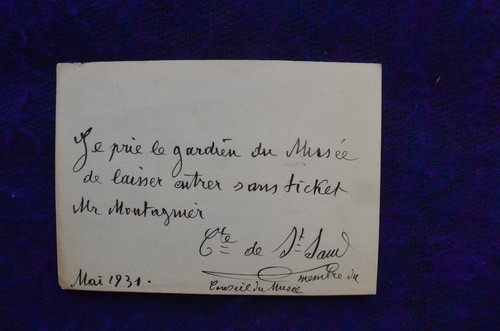 Je prie le gardien du Musée
de laisser entrer sans ticket
Mr Montagnier
Cte de St Saud
membre du
Conseil du Musée
Mai 1931.